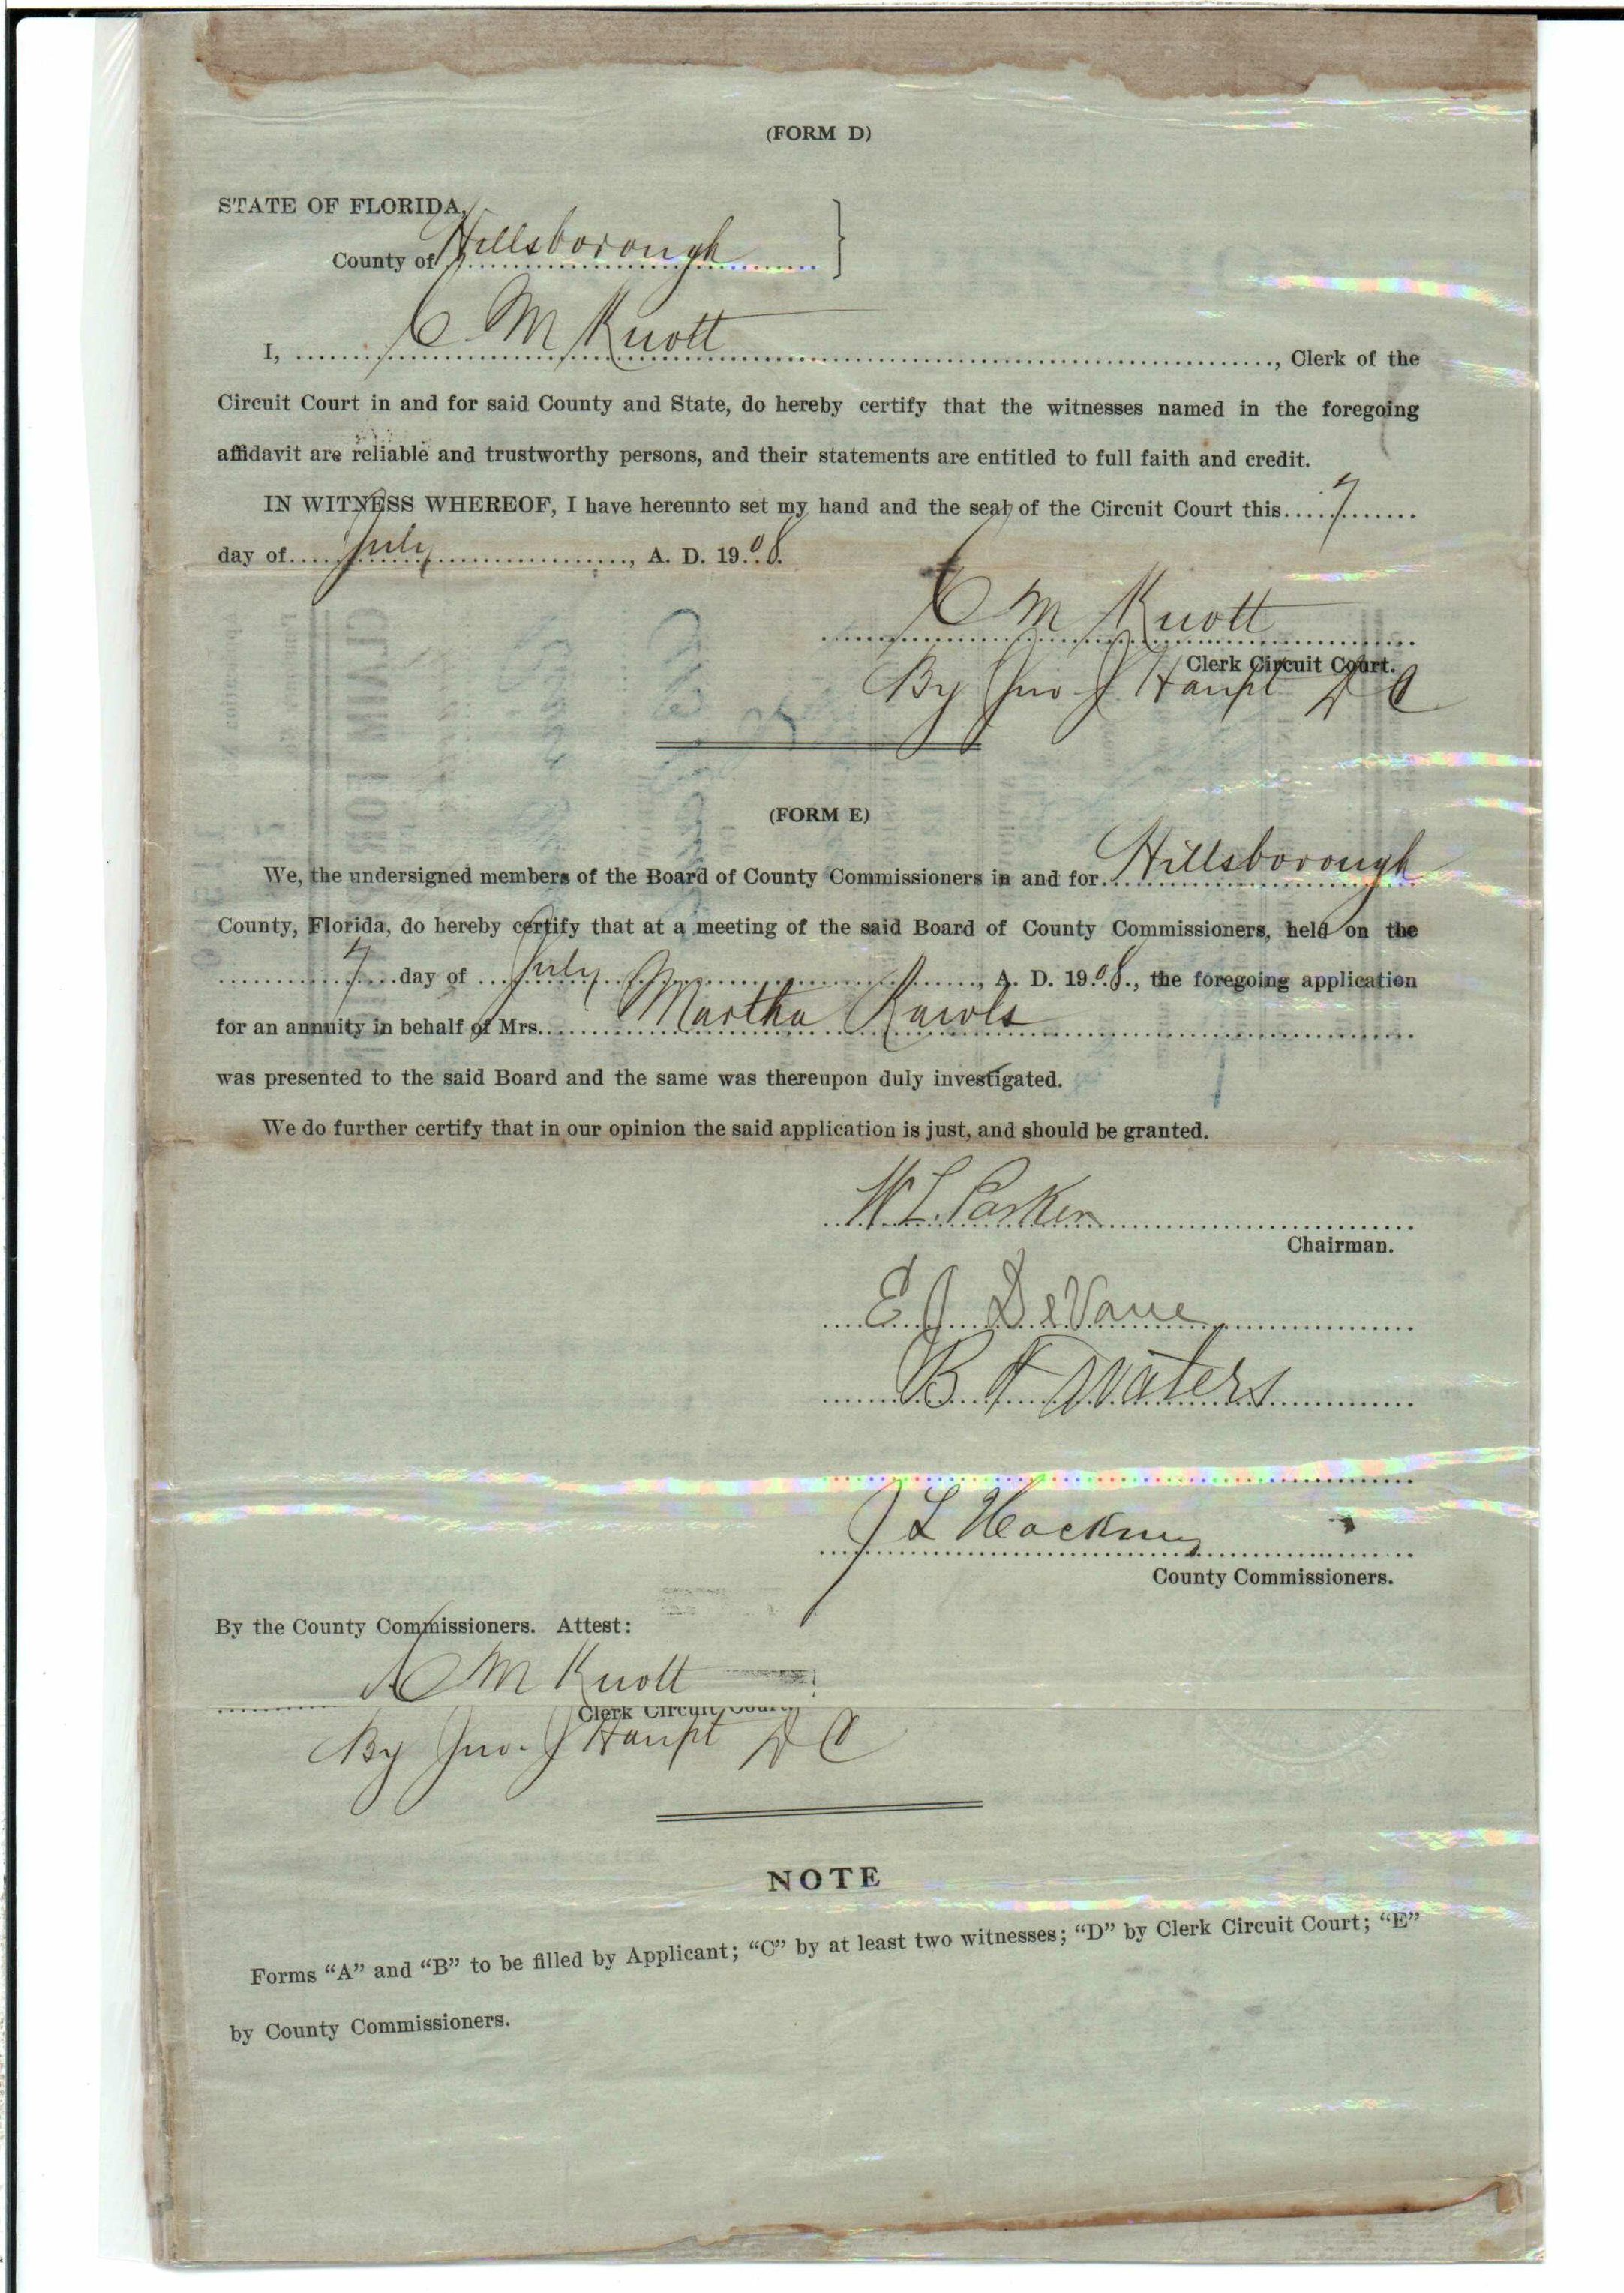 (FORM D)
STATE OF FLORIDA,
County of Hillsborough
I, C M Knott, Clerk of the
Circuit Court in and for said County and State, do hereby certify that the witnesses named in the foregoing
affidavit are reliable and trustworthy persons, and their statements are entitled to full faith and credit.
IN WITNESS WHEREOF, I have hereunto set my hand and the seal of the Circuit Court this 7
day of July, A. D. 1908.
C M Knott
Clerk Circuit Court.
By Jno J Haupt D C
(FORM E)
We, the undersigned members of the Board of County Commissioners in and for Hillsborough
County, Florida, do hereby certify that at a meeting of the said Board of County Commissioners, held on the
7 day of July, A. D. 1908., the foregoing application
for an annuity in behalf of Mrs. Martha Rawls
was presented to the said Board and the same was thereupon duly investigated.
We do further certify that in our opinion the said application is just, and should be granted.
W L. Parker
Chairman.
E J DeVane
B F Waters
J L Hackney
County Commissioners.
By the County Commissioners. Attest:
C M Knott
Clerk Circuit Court
By Jno. J Haupt D C
NOTE
Forms “A” and “B” to be filled by Applicant; “C” by at least two witnesses; “D” by Clerk Circuit Court; “E”
by County Commissioners.